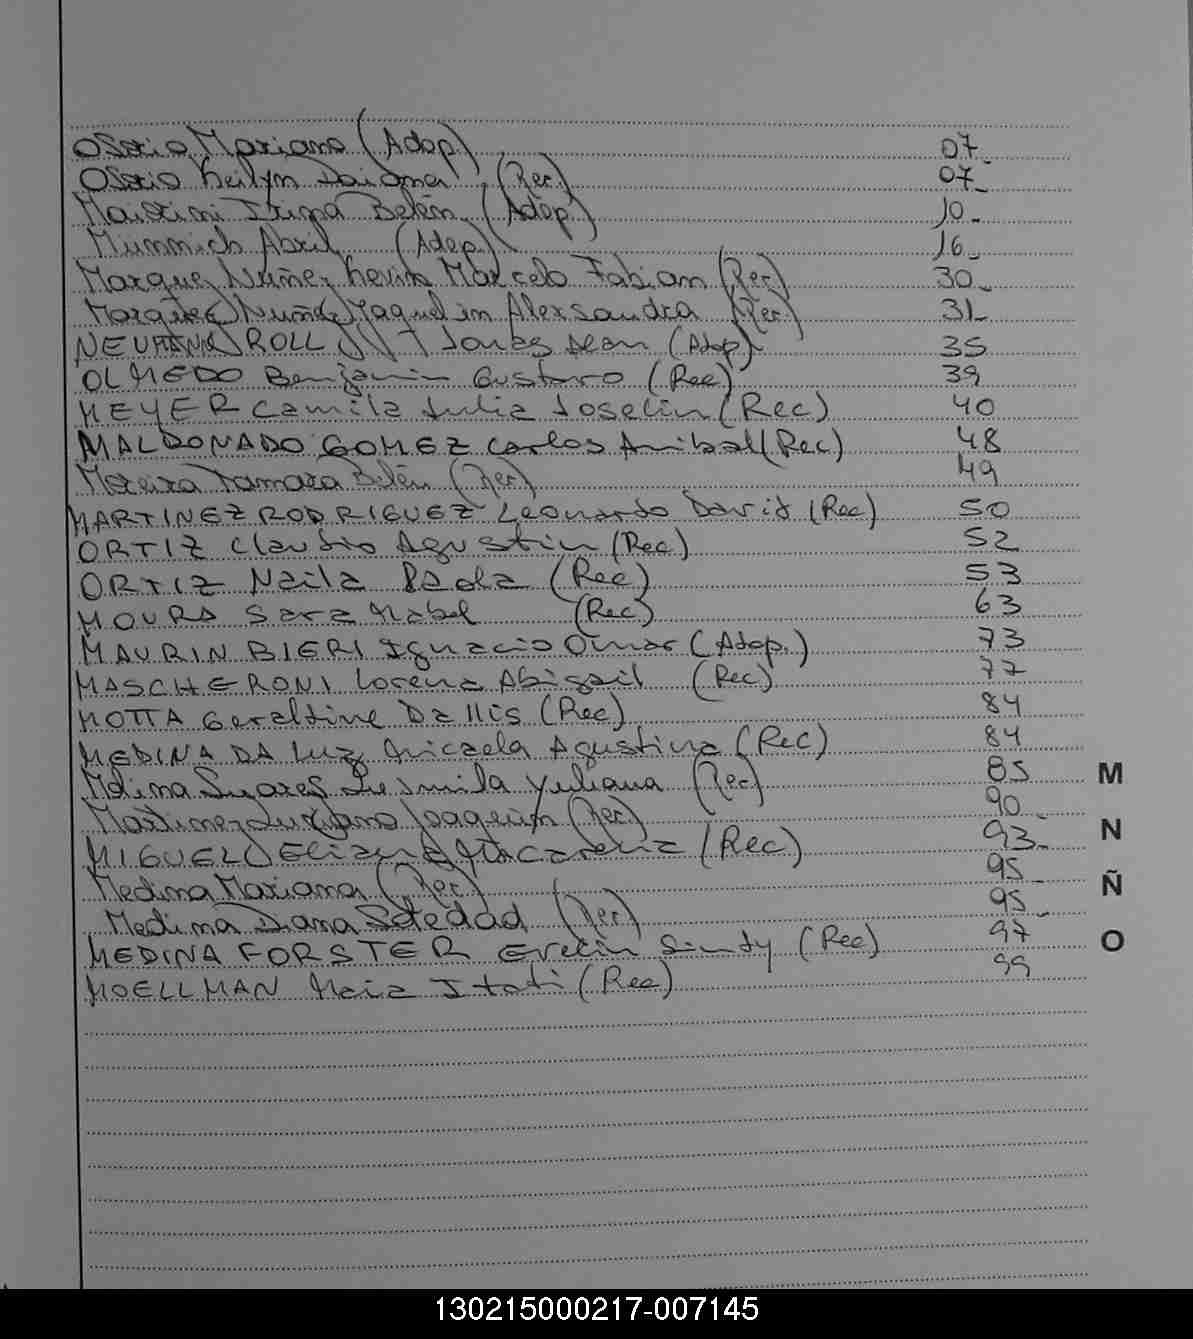 Osorio Mariano (Adop.) 07_
Osorio Keilyn Daiana (Rec.) 07_
Maistini Belén (Adop.) 10_
Mummich Abril (Adop.) 16_
Marquez Nuñez Kevin Marcelo Fabian (Rec) 30_
Marquez Nuñez Jaquelin Alexsandra (Rec) 31_
NEUMANN ROLL Jonas Dean (Adop) 35
OLMEDO Benjamin Gustavo (Rec) 39
MEYER Camila Julia Joselin (Rec) 40
MALDONADO GOMEZ Carlos Anibal (Rec) 48
Moreira Tamara Belén (Rec) 49
MARTINEZ RODRIGUEZ Leonardo David (Rec) 50
ORTIZ Claudio Agustin (Rec) 52
ORTIZ Naila Paola (Rec) 53
MOURA Sara Mabel (Rec) 63
MAURIN BIERI Ignacio Omar (Adop.) 73
MASCHERONI Lorena Abigail (Rec) 77
MOTTA Geraldine Dallis (Rec) 84
MEDINA DA LUZ Micaela Agustina (Rec) 84
Mdina Suarez Ludmila Yuliana (Rec) 85
Martinez Luciano Joaquin (Rec) 90
MIGUEL Eliana Macarena (Rec) 93_
Medina Mariana (Rec) 95_
Medina Diana Soledad (Rec) 95_
MEDINA FORSTER Evelin Sindy (Rec) 97
MOELLMAN Maia Itati (Rec) 99
M
N
Ñ
O
130215000217-007145